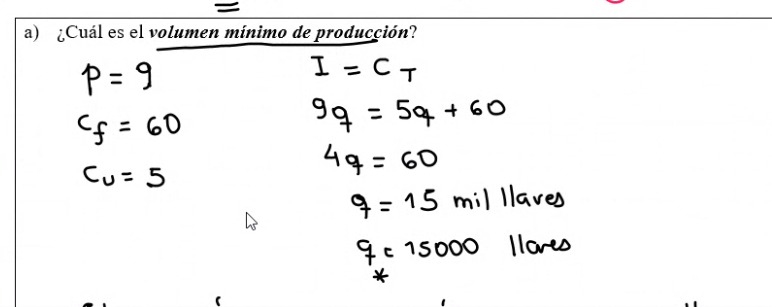 a) ¿Cuál es el volumen mínimo de producción?
P = 9
Cf = 60
Cu = 5
I = CT
9q = 5q + 60
4q = 60
q = 15 mil llaves
q = 15000 llaves
*